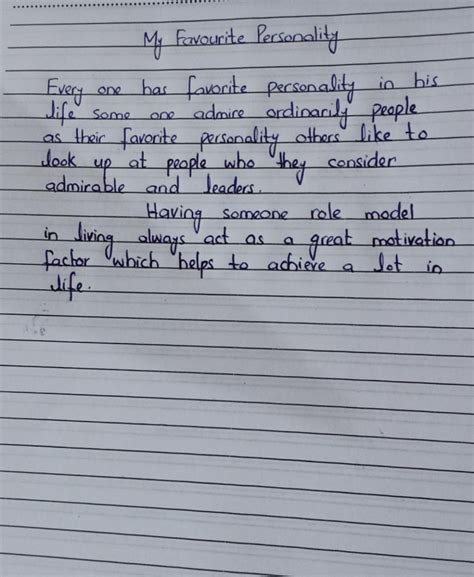 My Favourite Personality
Every one has favorite personality in his
life some one admire ordinarily people
as their favorite personality others like to
look up at people who they consider
admirable and leaders.
Having someone role model
in living always act as a great motivation
factor which helps to achieve a lot in
life.